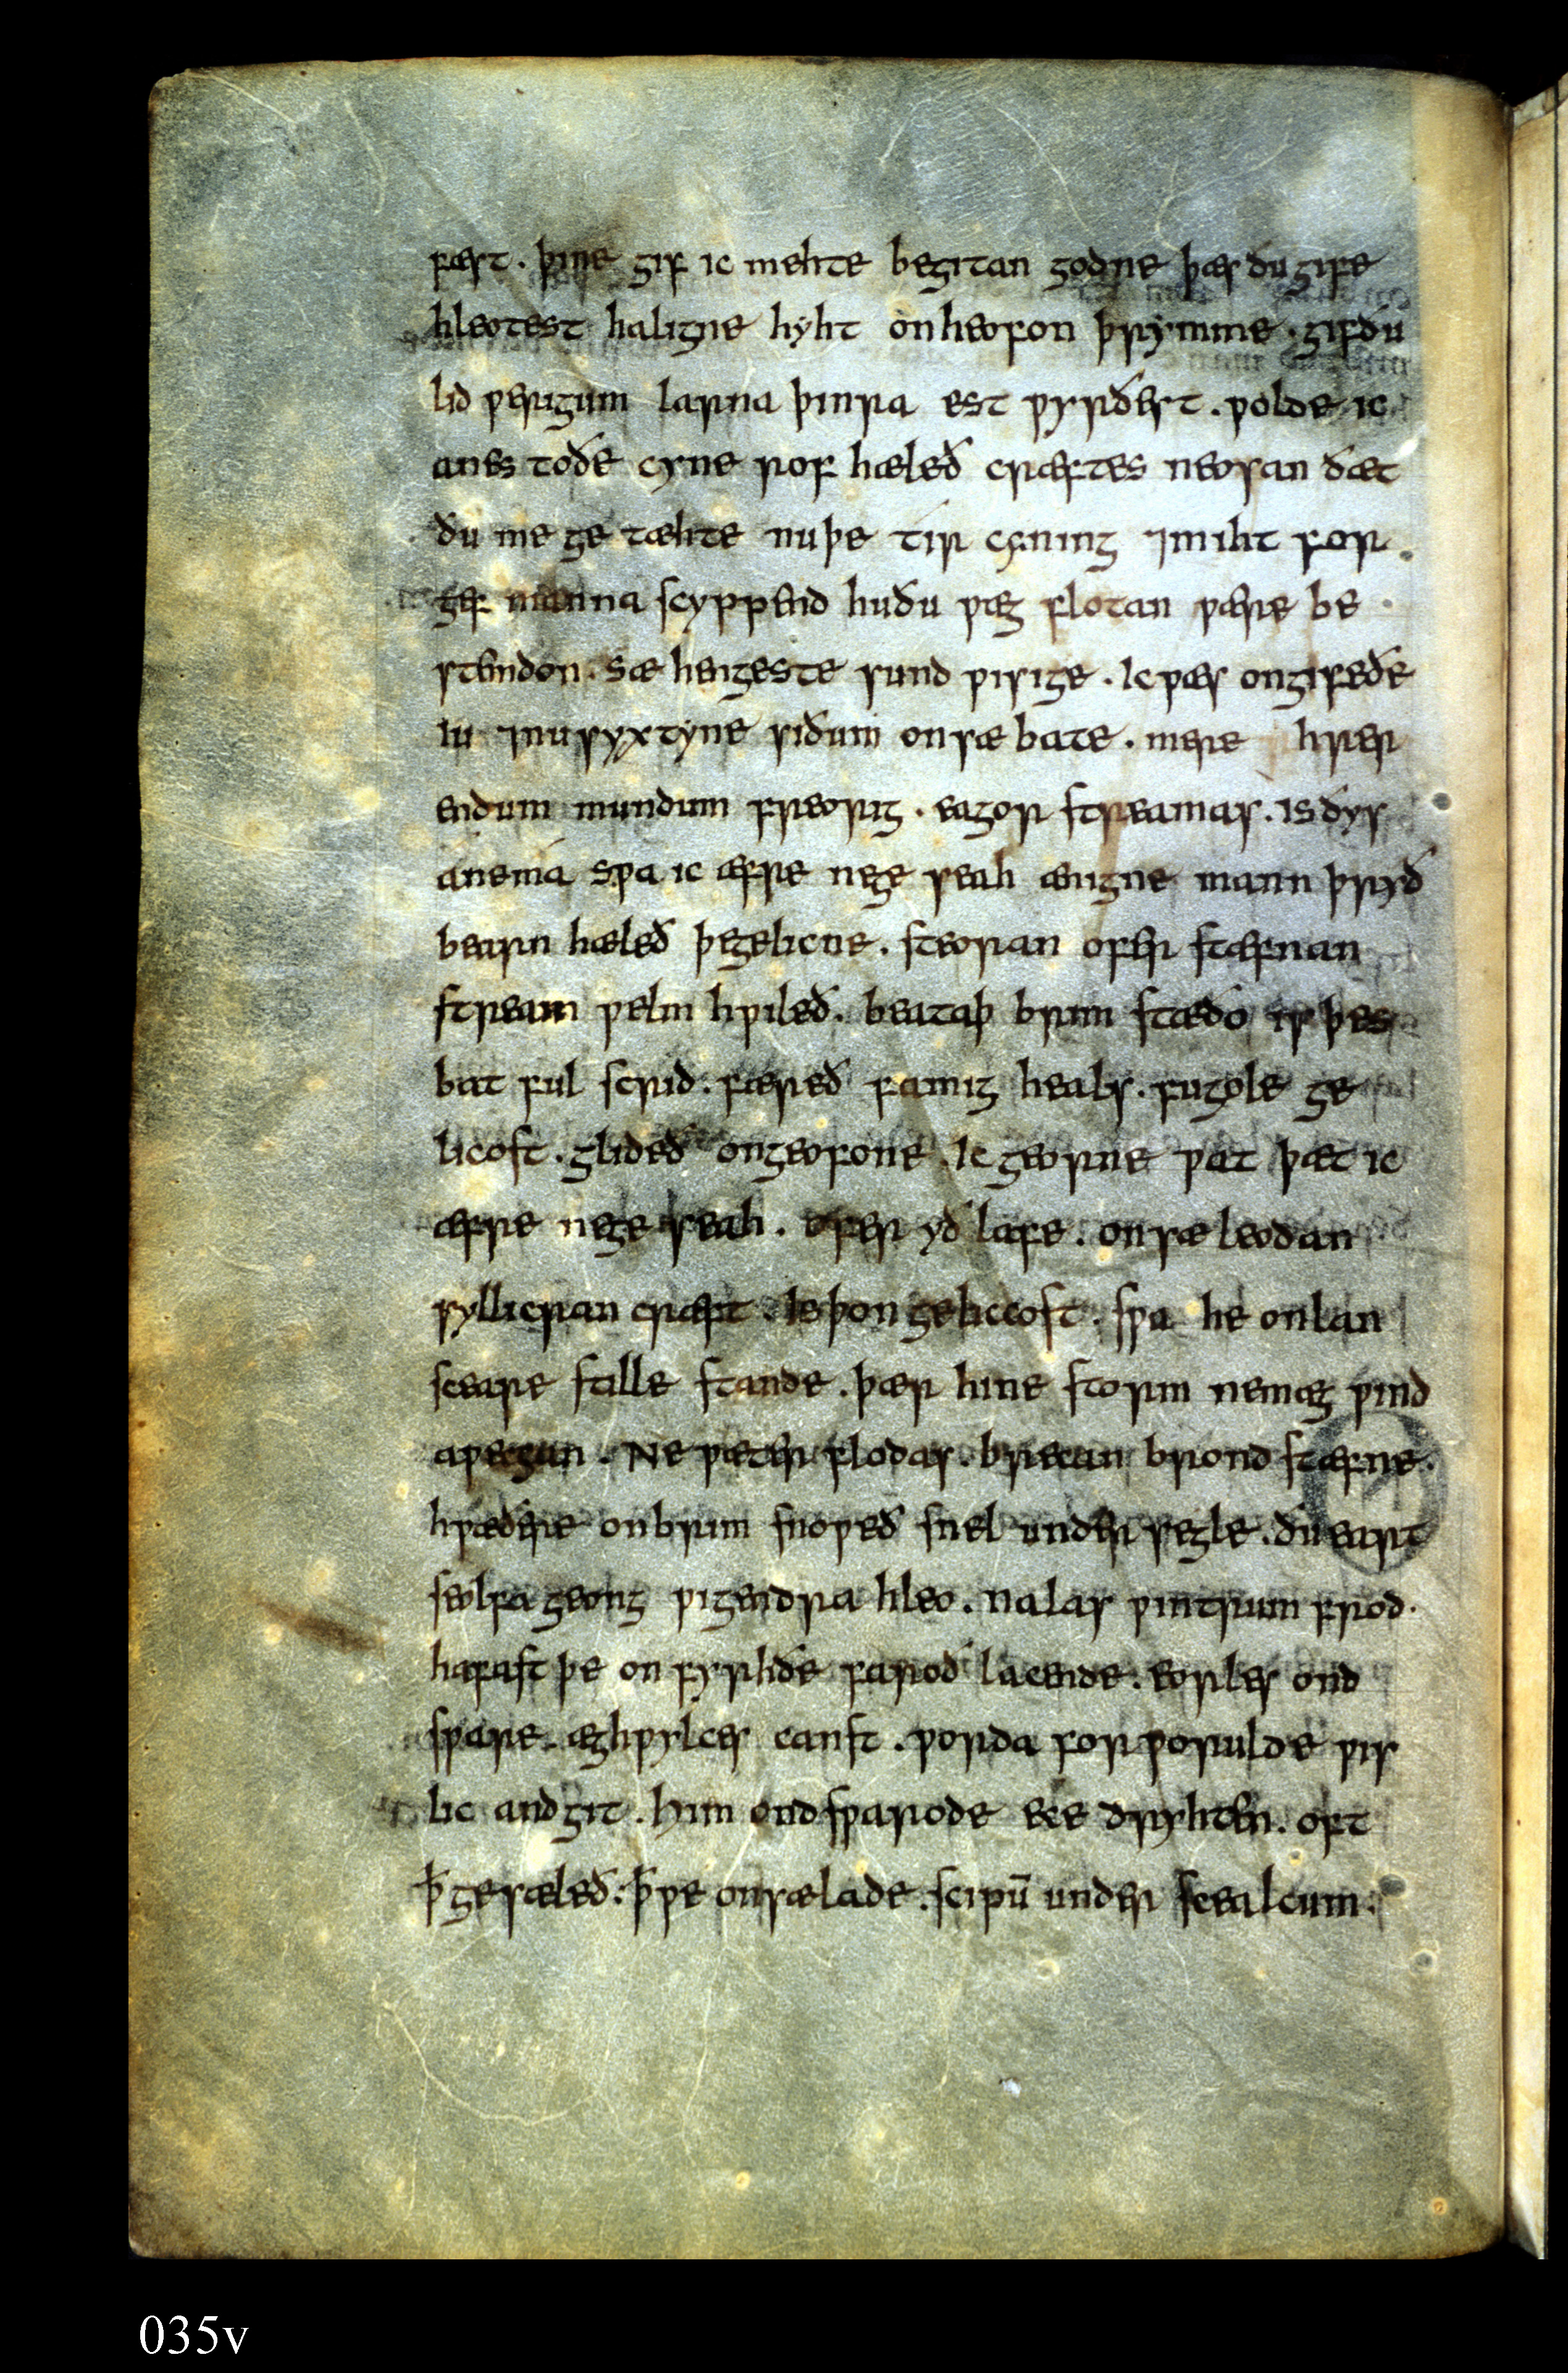 fæst · þine gif ic mehte begitan godne þæs ðu gife
hleotest haligne hyht onheofon þrymme · gif ðu
lid ƿerigum larna þinra est ƿyrðest . ƿolde ic
anes toðe cyne rof hæleð cræftes neosan ðæt
ðu me ge tæhte nuþe tir cyning ⁊miht for
gef manna scyppend huðu ƿæg flotan ƿære be
stemdon . sæ hengeste sund ƿisige . Ic ƿæs ongifeðe
iu ⁊nu syxtyne siðum onsæ bate . mere hrer
endum mundum freorig . eagor streamas . is ðys
ane ma sƿa ic æfre nege seah ænigne mann þryð
bearn hæleð þegelicne . steoran ofer stæfnan
stream ƿelm hƿileð . beataþ brim stæðo is þes
bat ful scrid . færeð famig heals . fugole ge
licost . glideð ongeofone . Ic georne ƿat þæt ic
æfre nege seah . ofer yð lafe . onsæ leodan
syllicran cræft . Is þon geliccost . sƿa he onlan
sceare stille stande . þær hine storm nemæg ƿind
aƿecgan . Ne ƿæter flodas . brecan brond stæfne .
hƿæðere onbrim snoƿeð snel under segle . ðu eart
seolfa geong ƿigendra hleo . nalas ƿintrum frod .
hafast þe on fyrhðe faroð lacende . eorles ond
sƿare . æghƿylces canst . ƿorda for ƿorulde ƿis
lic andgit . him ondsƿarode ece dryhten . oft
ꝥ gesæleð . ꝥ ƿe onsælade . scipū under scealcum .
035v